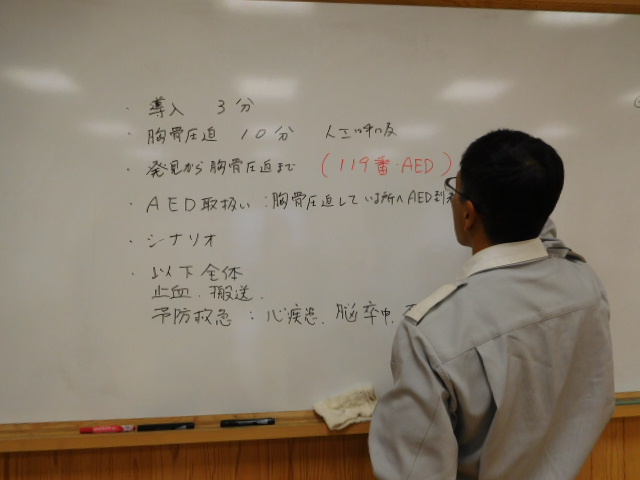 ・ 導入 3分
・ 胸骨圧迫 10分 人工呼吸
・ 発見から胸骨圧迫まで (119番・AED)
・ AED取扱い:胸骨圧迫している所へAED到
・ シナリオ
・ 以下全体
止血、搬送、
予防救急:心疾患、脳卒中、